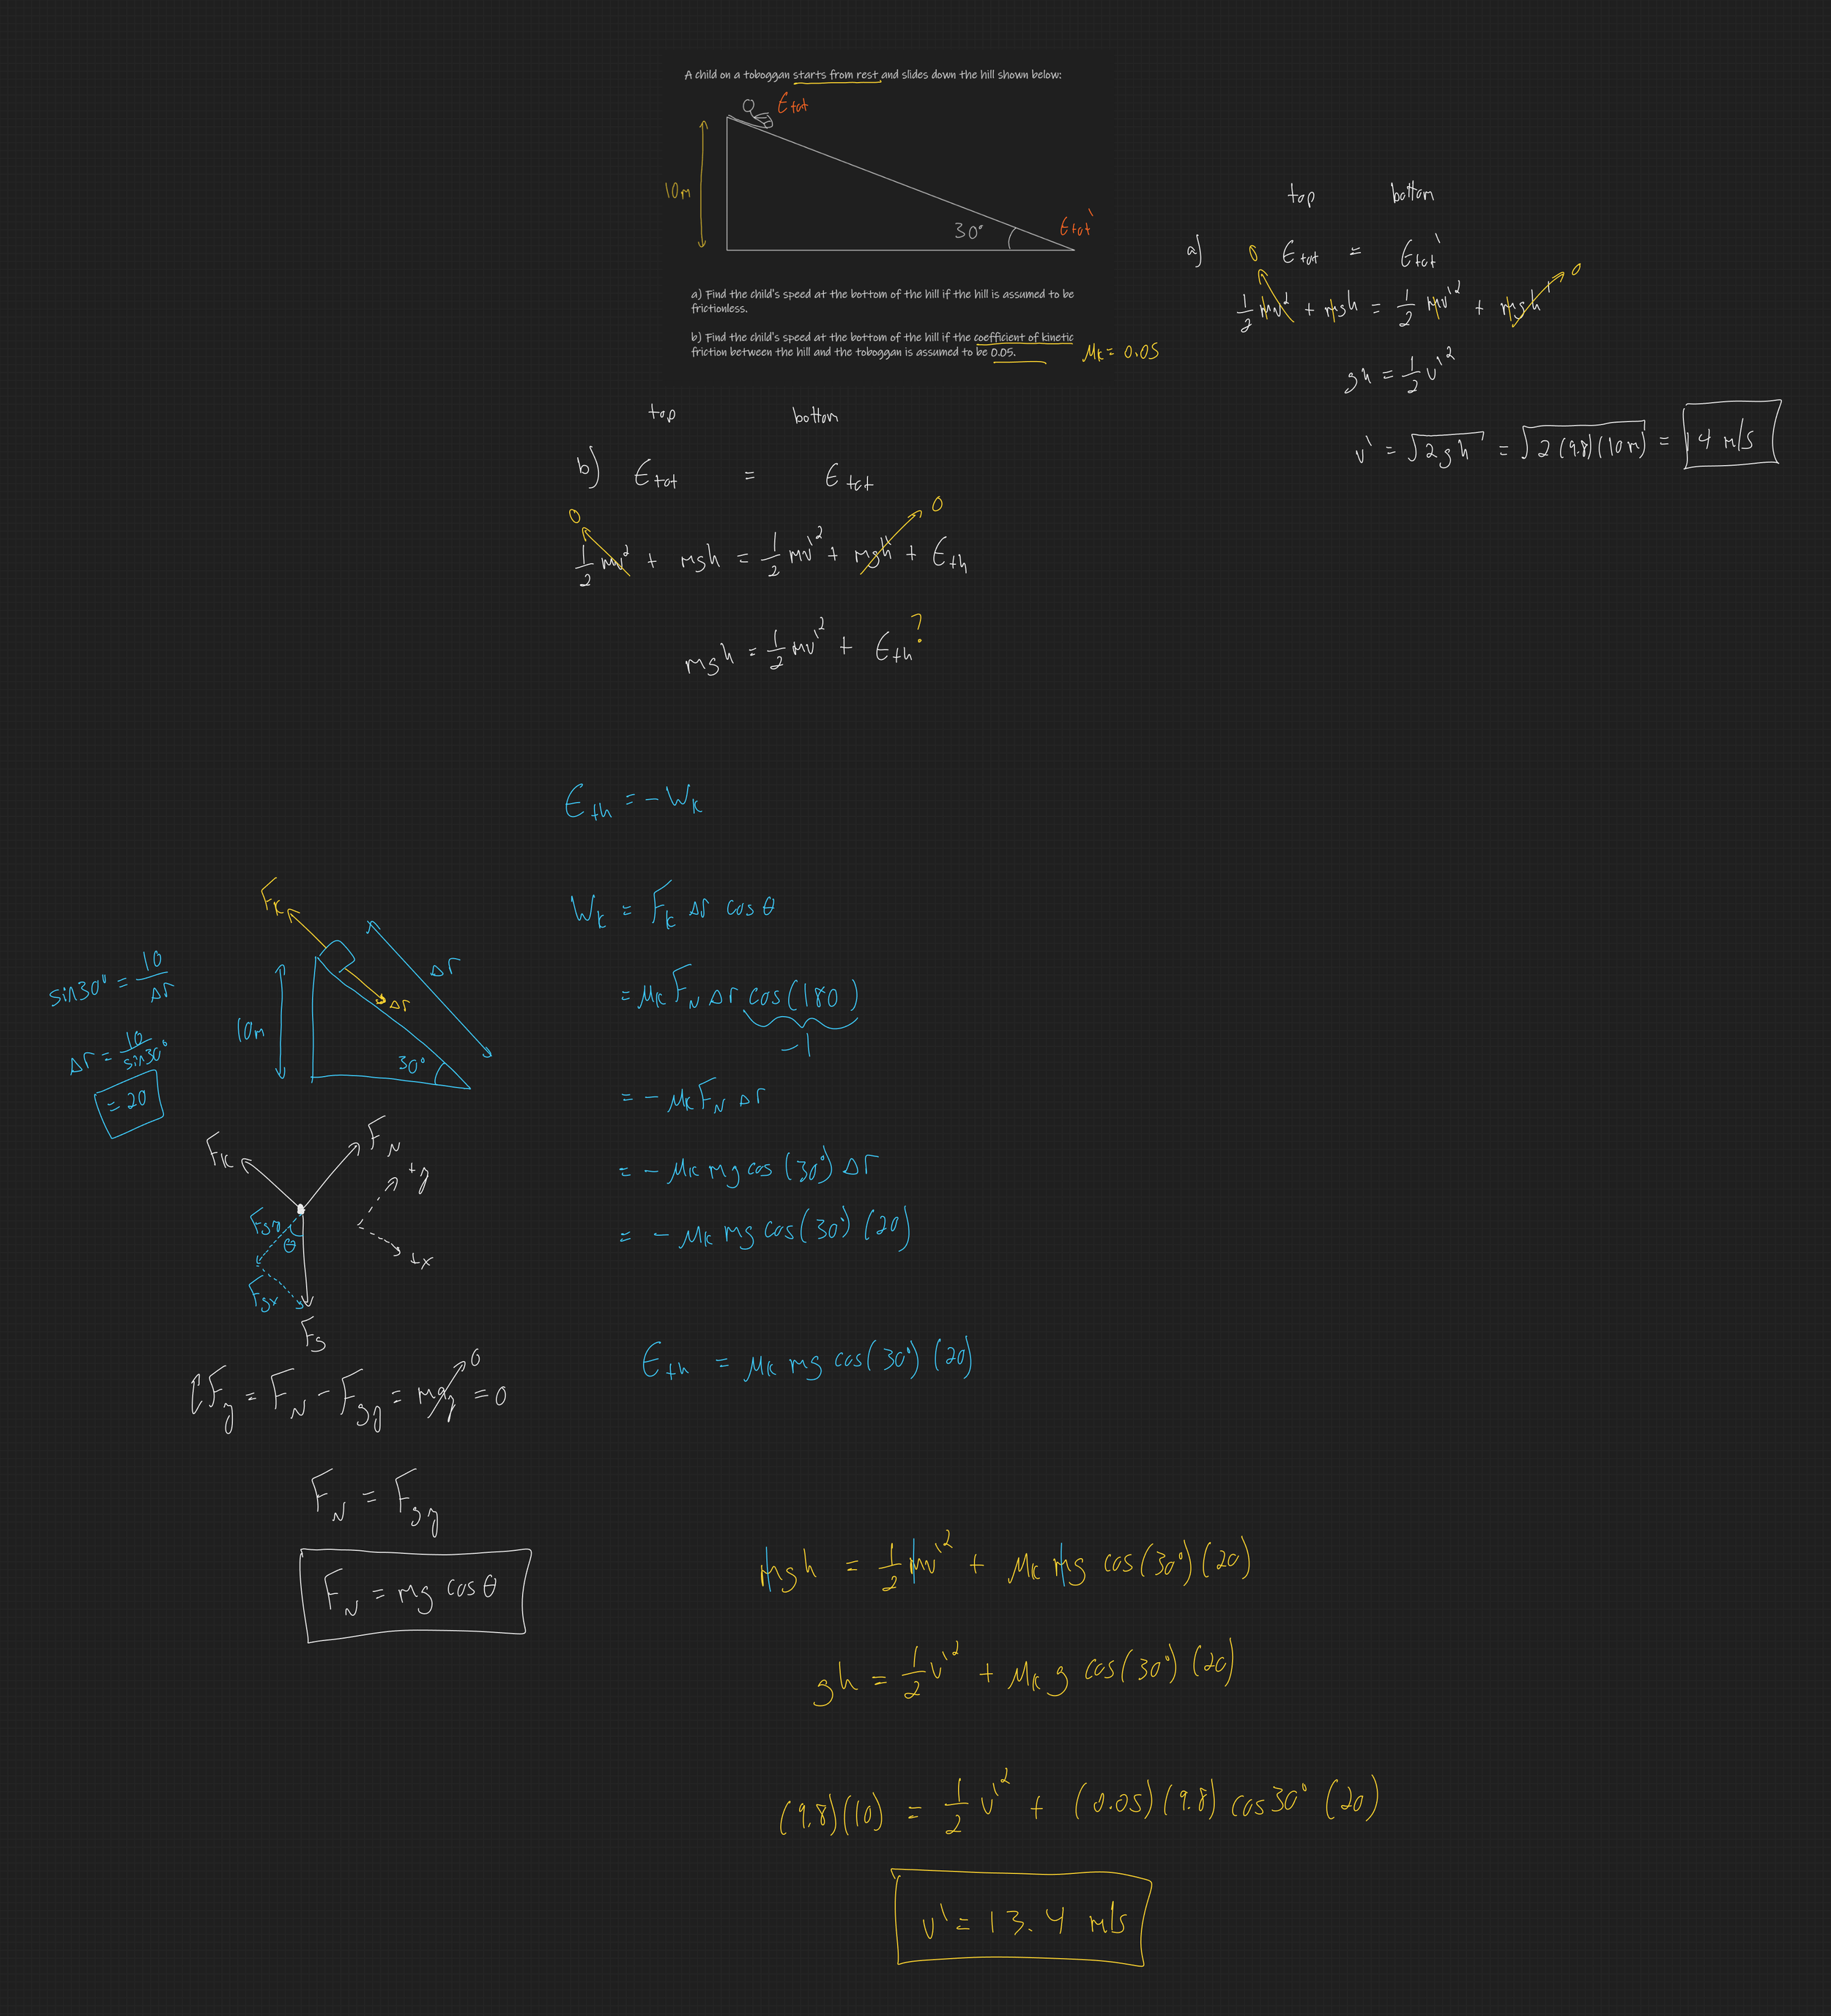 A child on a toboggan starts from rest and slides down the hill shown below:
E tot
10m
30°
E tot'
a) Find the child's speed at the bottom of the hill if the hill is assumed to be
frictionless.
b) Find the child's speed at the bottom of the hill if the coefficient of kinetic
friction between the hill and the toboggan is assumed to be 0.05.
μk = 0.05
top bottom
a) 0 E tot = E tot'
1/2 mv² + mgh = 1/2 mv'² + mgh' 0
gh = 1/2 v'²
v' = √2gh = √2(9.8)(10m) = 14 m/s
top bottom
b) E tot = E tot
0 0
1/2 mv² + mgh = 1/2 mv'² + mgh' + E th
mgh = 1/2 mv'² + E th ?
E th = -Wk
Wk = Fk Δr cos θ
= μk FN Δr cos(180)
-1
= - μk FN Δr
= - μk mg cos(30°) Δr
= - μk mg cos(30°)(20)
E th = μk mg cos(30°)(20)
Fk
Δr
Δr
10m
30°
sin30° = 10/Δr
Δr = 10/sin30°
= 20
Fk
FN
+y
+x
Fgy
θ
Fgx
Fg
ΣFy = FN - Fgy = may 0 = 0
FN = Fgy
FN = mg cos θ
mgh = 1/2 mv'² + μk mg cos(30°)(20)
gh = 1/2 v'² + μk g cos(30°)(20)
(9.8)(10) = 1/2 v'² + (0.05)(9.8) cos30° (20)
v' = 13.4 m/s